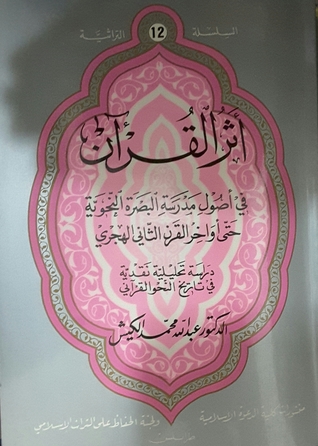 السلسلة 12 التراثية
أثر القرآن
في أصول مدرسة البصرة النحوية
حتى أواخر القرن الثاني الهجري
دراسة تحليلية نقدية
في تاريخ النحو القرآني
الدكتور عبدالله محمد الكيش
منشورات كلية الدعوة الإسلامية ولجنة الحفاظ على التراث الإسلامي
طرابلس